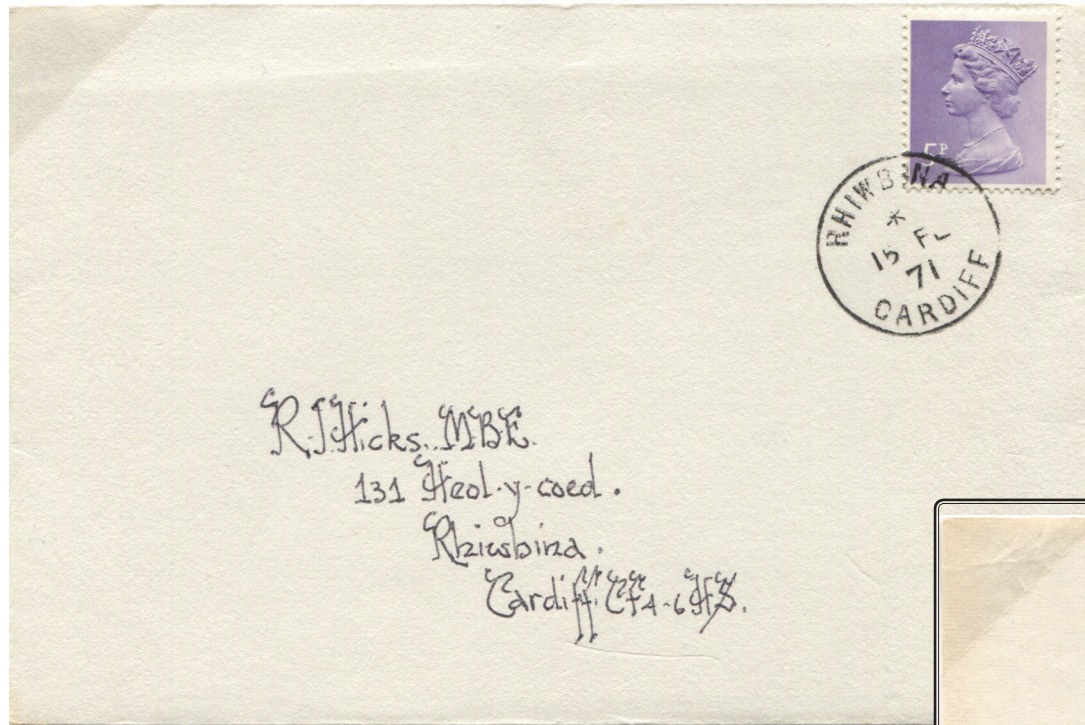 5P
RHIWBINA
*
15 FE
71
CARDIFF
R.J.Hicks. MBE.
131 Heol-y-coed.
Rhiwbina.
Cardiff. CF4-6HS.